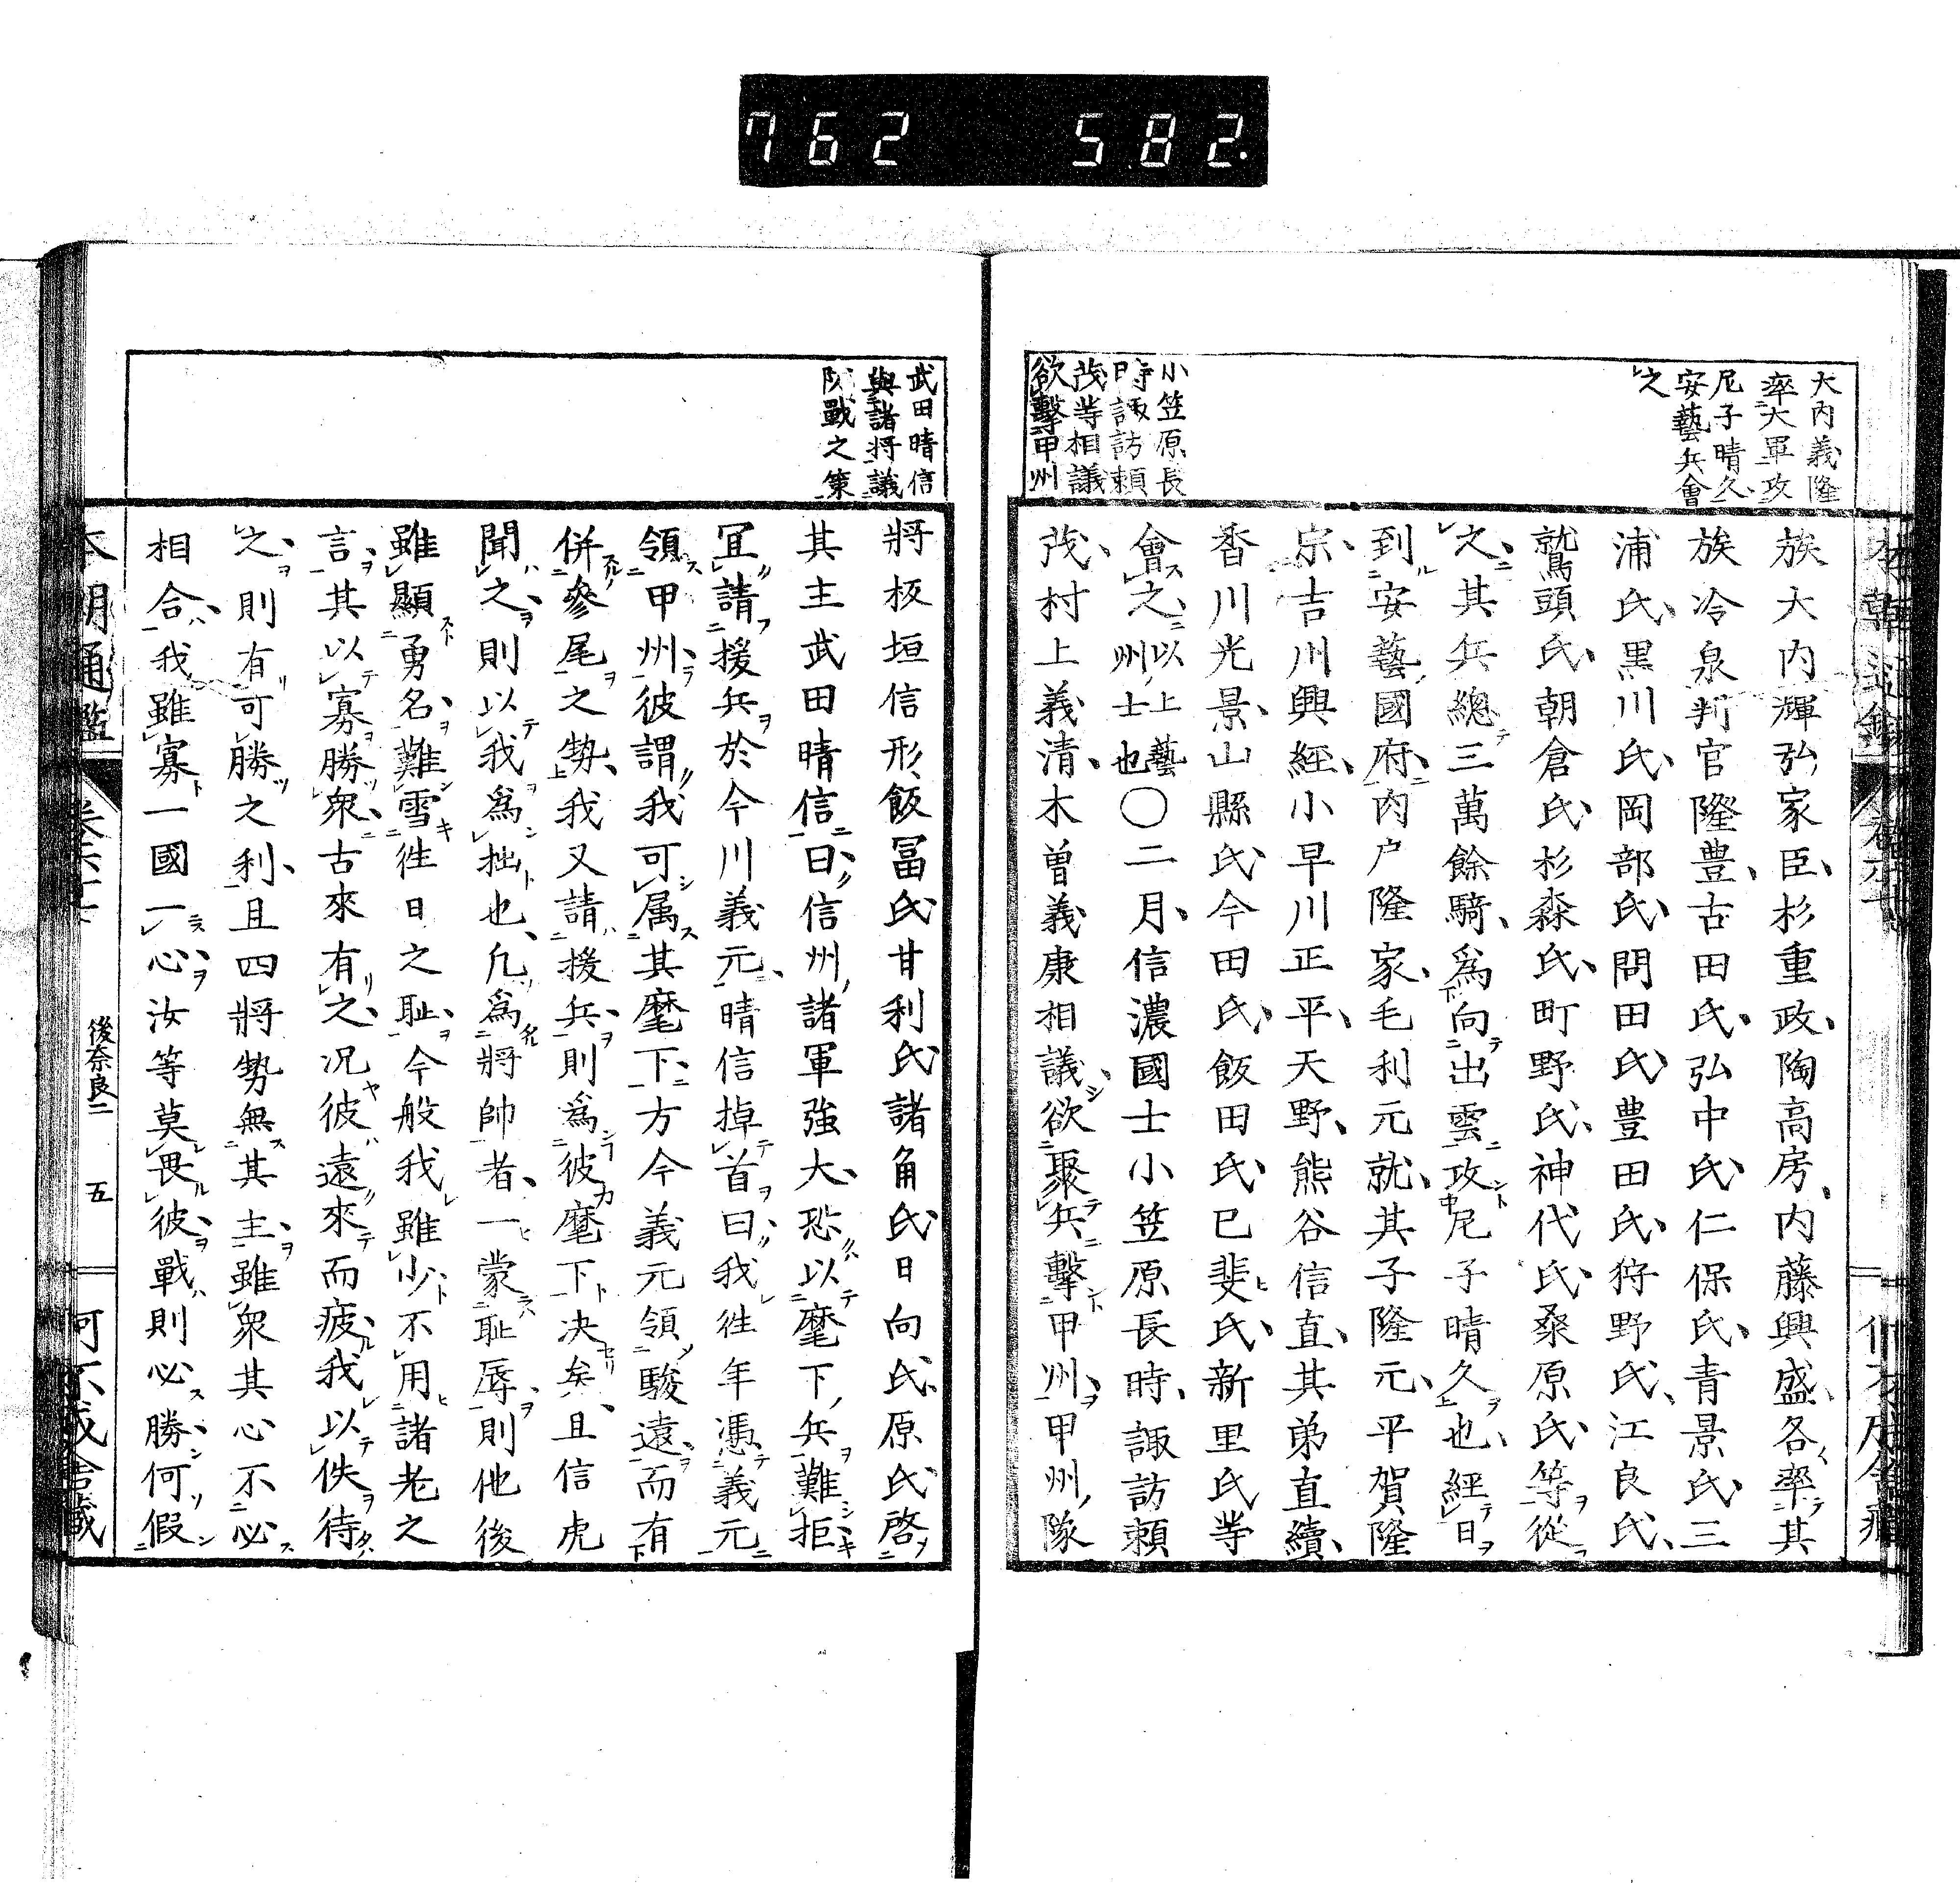 762 582.
大内義隆
率大軍攻
尼子晴久
安藝兵會
之
小笠原長
時諏訪頼
茂等相議
欲擊甲州
族大内輝弘家臣杉重政陶高房内藤興盛各率其
族冷泉判官隆豊古田氏弘中氏仁保氏青景氏三
浦氏黒川氏岡部氏問田氏豊田氏狩野氏江良氏
鷲頭氏朝倉氏杉森氏町野氏神代氏桑原氏等從
之其兵總三萬餘騎爲向出雲攻尼子晴久也經日
到安藝國府宍戸隆家毛利元就其子隆元平賀隆
宗吉川興經小早川正平天野熊谷信直其弟直續
香川光景山縣氏今田氏飯田氏巳斐氏新里氏等
會之以上藝州士也〇二月信濃國士小笠原長時諏訪頼
茂村上義清木曽義康相議欲聚兵擊甲州甲州隊
武田晴信
與諸將議
防戰之策
將板垣信形飯冨氏甘利氏諸角氏日向氏原氏啓
其主武田晴信曰信州諸軍強大恐以麾下兵難拒
冝請援兵於今川義元晴信掉首曰我徃年憑義元
領甲州彼謂我可属其麾下方今義元領駿遠而有
併參尾之勢我又請援兵則爲彼麾下决矣且信虎
聞之則以我爲拙也凢爲將帥者一蒙耻辱則他後
雖顯勇名難雪徃日之耻今般我雖少不用諸老之
言其以寡勝衆古來有之况彼遠來而疲我以佚待
之則有可勝之利且四將勢無其主雖衆其心不必
相合我雖寡一國一心汝等莫畏彼戰則必勝何假
本朝通鑑
後奈良二
五